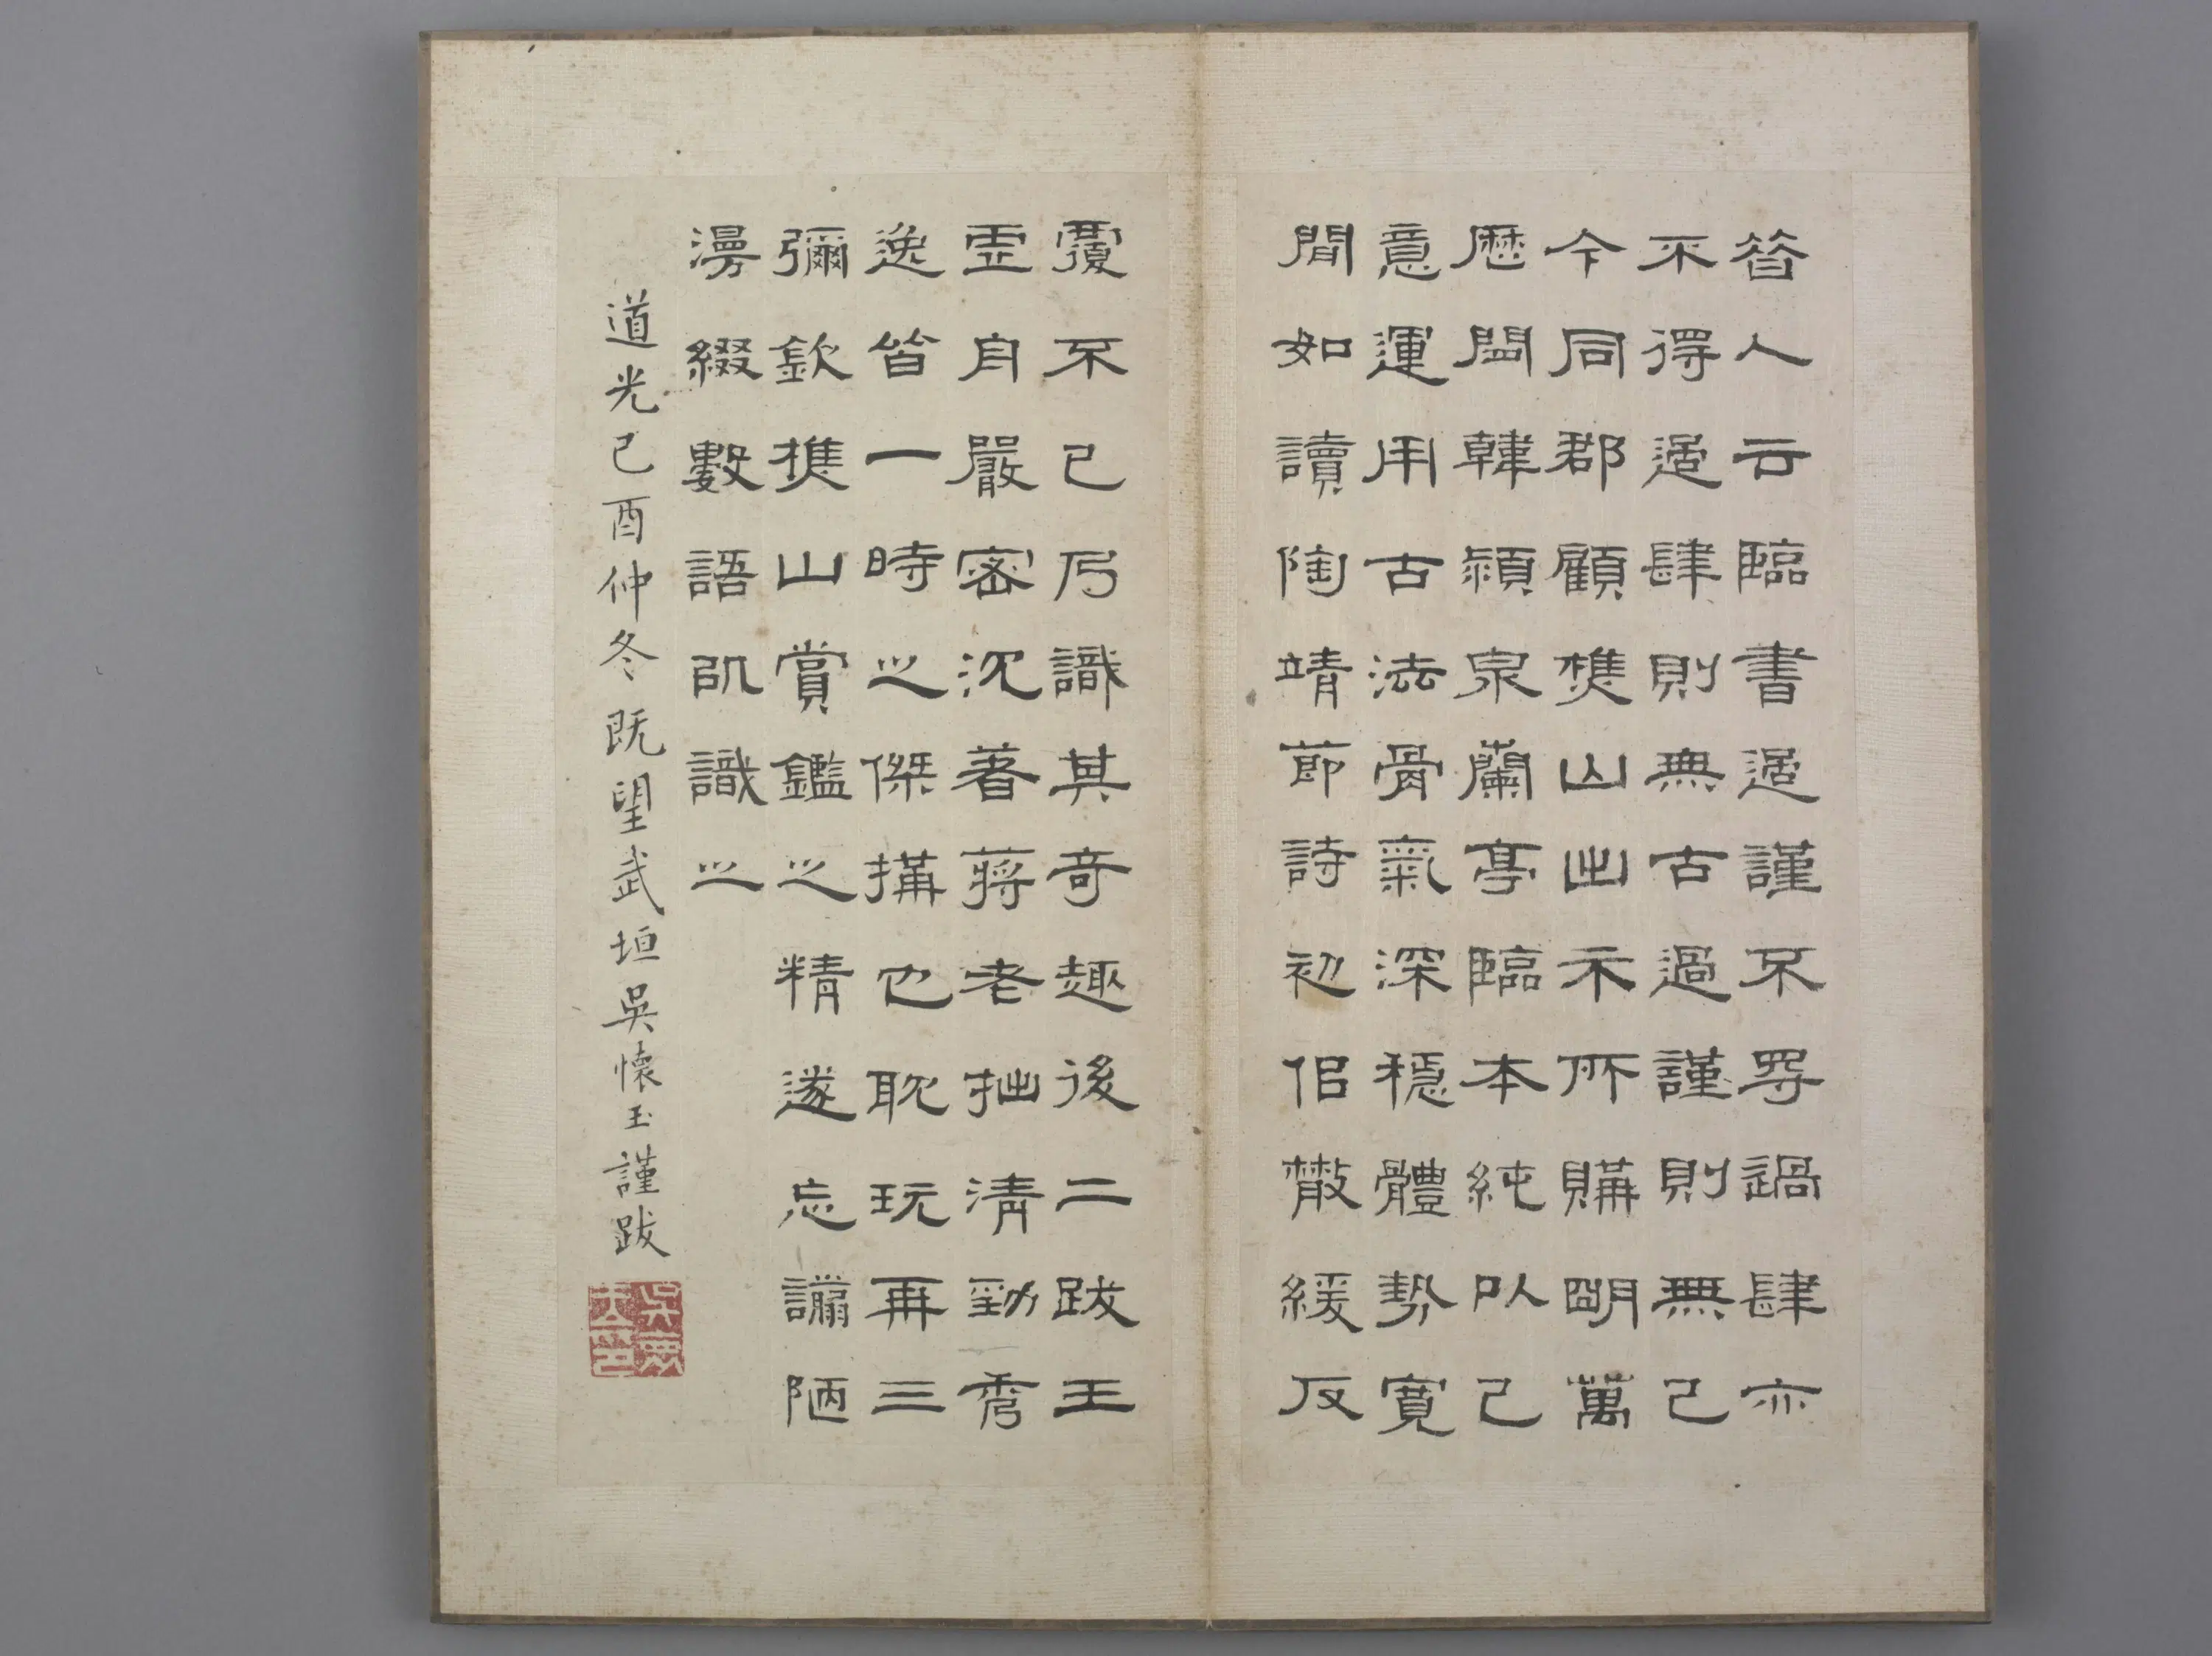 昔人云臨書過謹不㝵過肆亦
不得過肆則無古過謹則無己
今同郡顧樵山出示所購明萬
厯閩韓潁泉蘭亭臨本純以己
意運用古法骨氣深穩體勢寬
閒如讀陶靖節詩初但散緩反
覆不已乃識其奇趣後二跋王
虛舟嚴密沈著蔣老拙清勁秀
逸皆一時之傑搆也耽玩再三
彌欽樵山賞鑑之精遂忘譾陋
漫綴數語以識之
道光己酉仲冬既望武垣吳懷玉謹跋
吳懷玉印